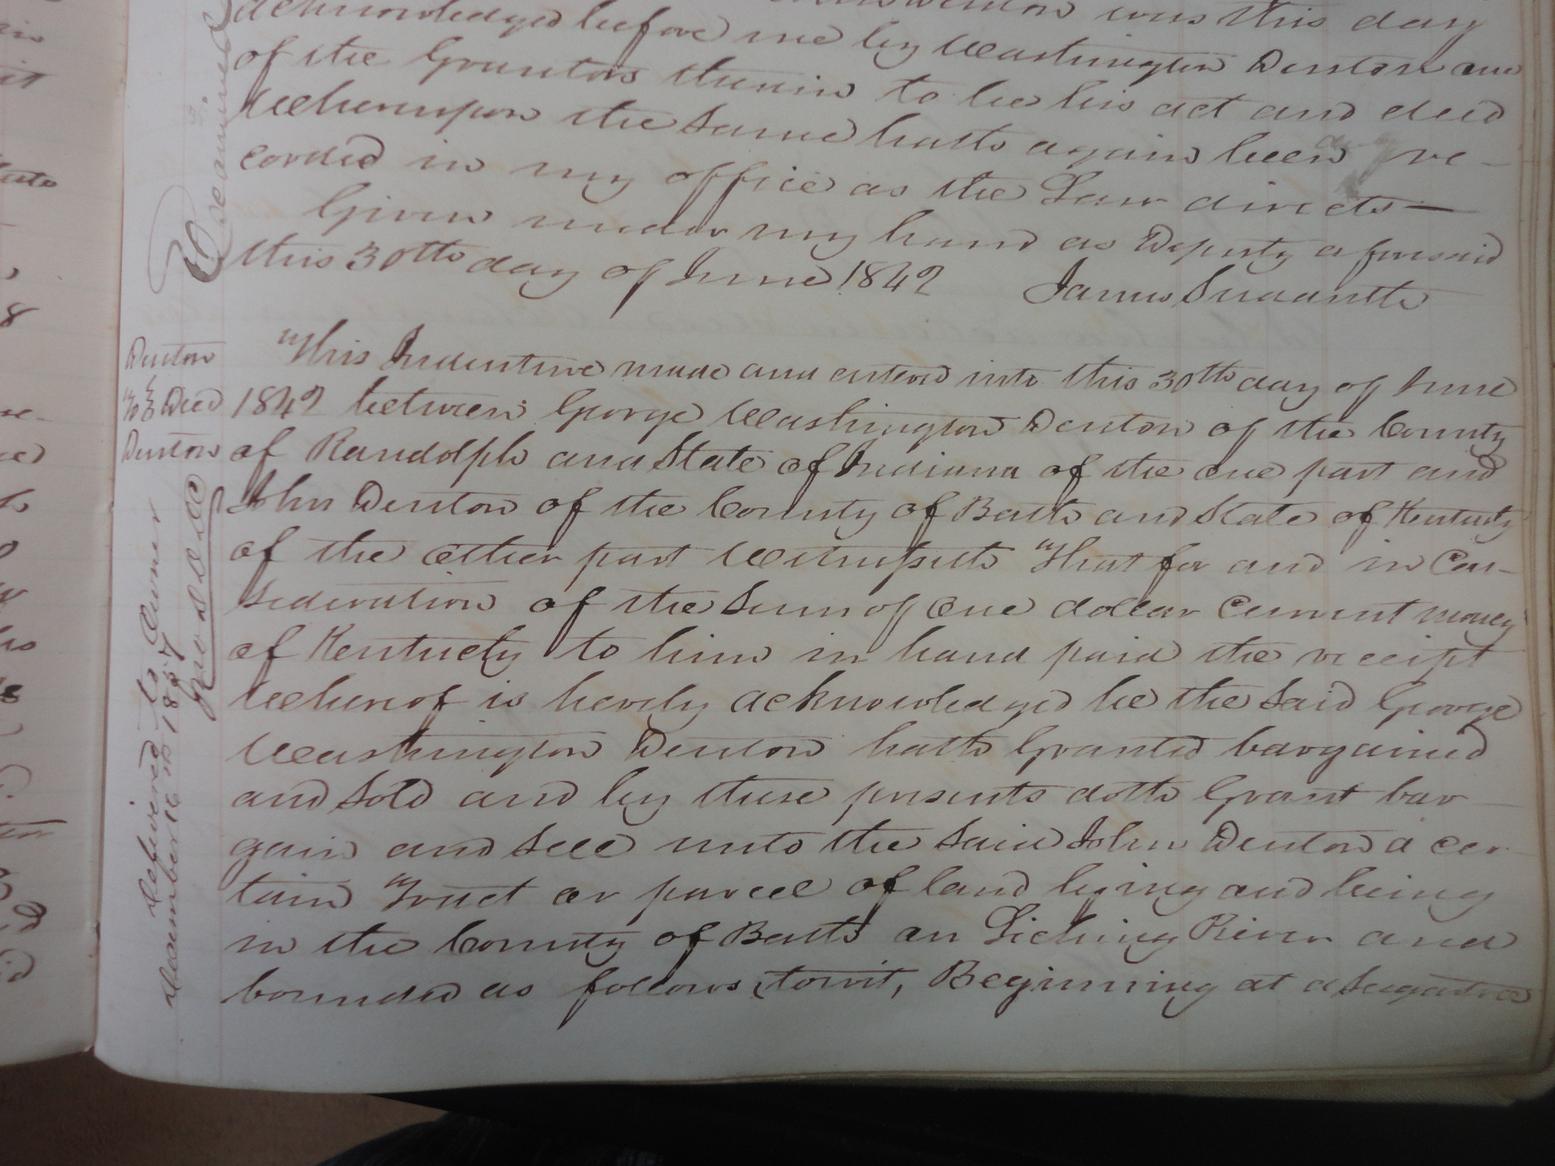 was this day
acknowledged before me by Washington Denton one
of the Grantors therein to be his act and deed
Whereupon the Same hath again been re-
corded in my office as the Law directs—
Given under my hand as Deputy aforesaid
this 30th day of June 1842 James Sudduth
This Indenture made and entered into this 30th day of June
1842 between George Washington Denton of the County
of Randolph and State of Indiana of the one part and
John Denton of the County of Bath and State of Kentucky
of the other part Witnesseth That for and in Con-
sideration of the Sum of One dollar Current money
of Kentucky to him in hand paid the receipt
Whereof is hereby acknowledged he the Said George
Washington Denton hath Granted bargained
and Sold and by these presents doth Grant bar-
gain and Sell unto the Said John Denton a cer-
tain Tract or parcel of land lying and being
in the County of Bath on Licking River and
bounded as follows, towit, Beginning at a Sugartree
Denton
To } Deed
Denton
Delivered to Owner
December
Examined